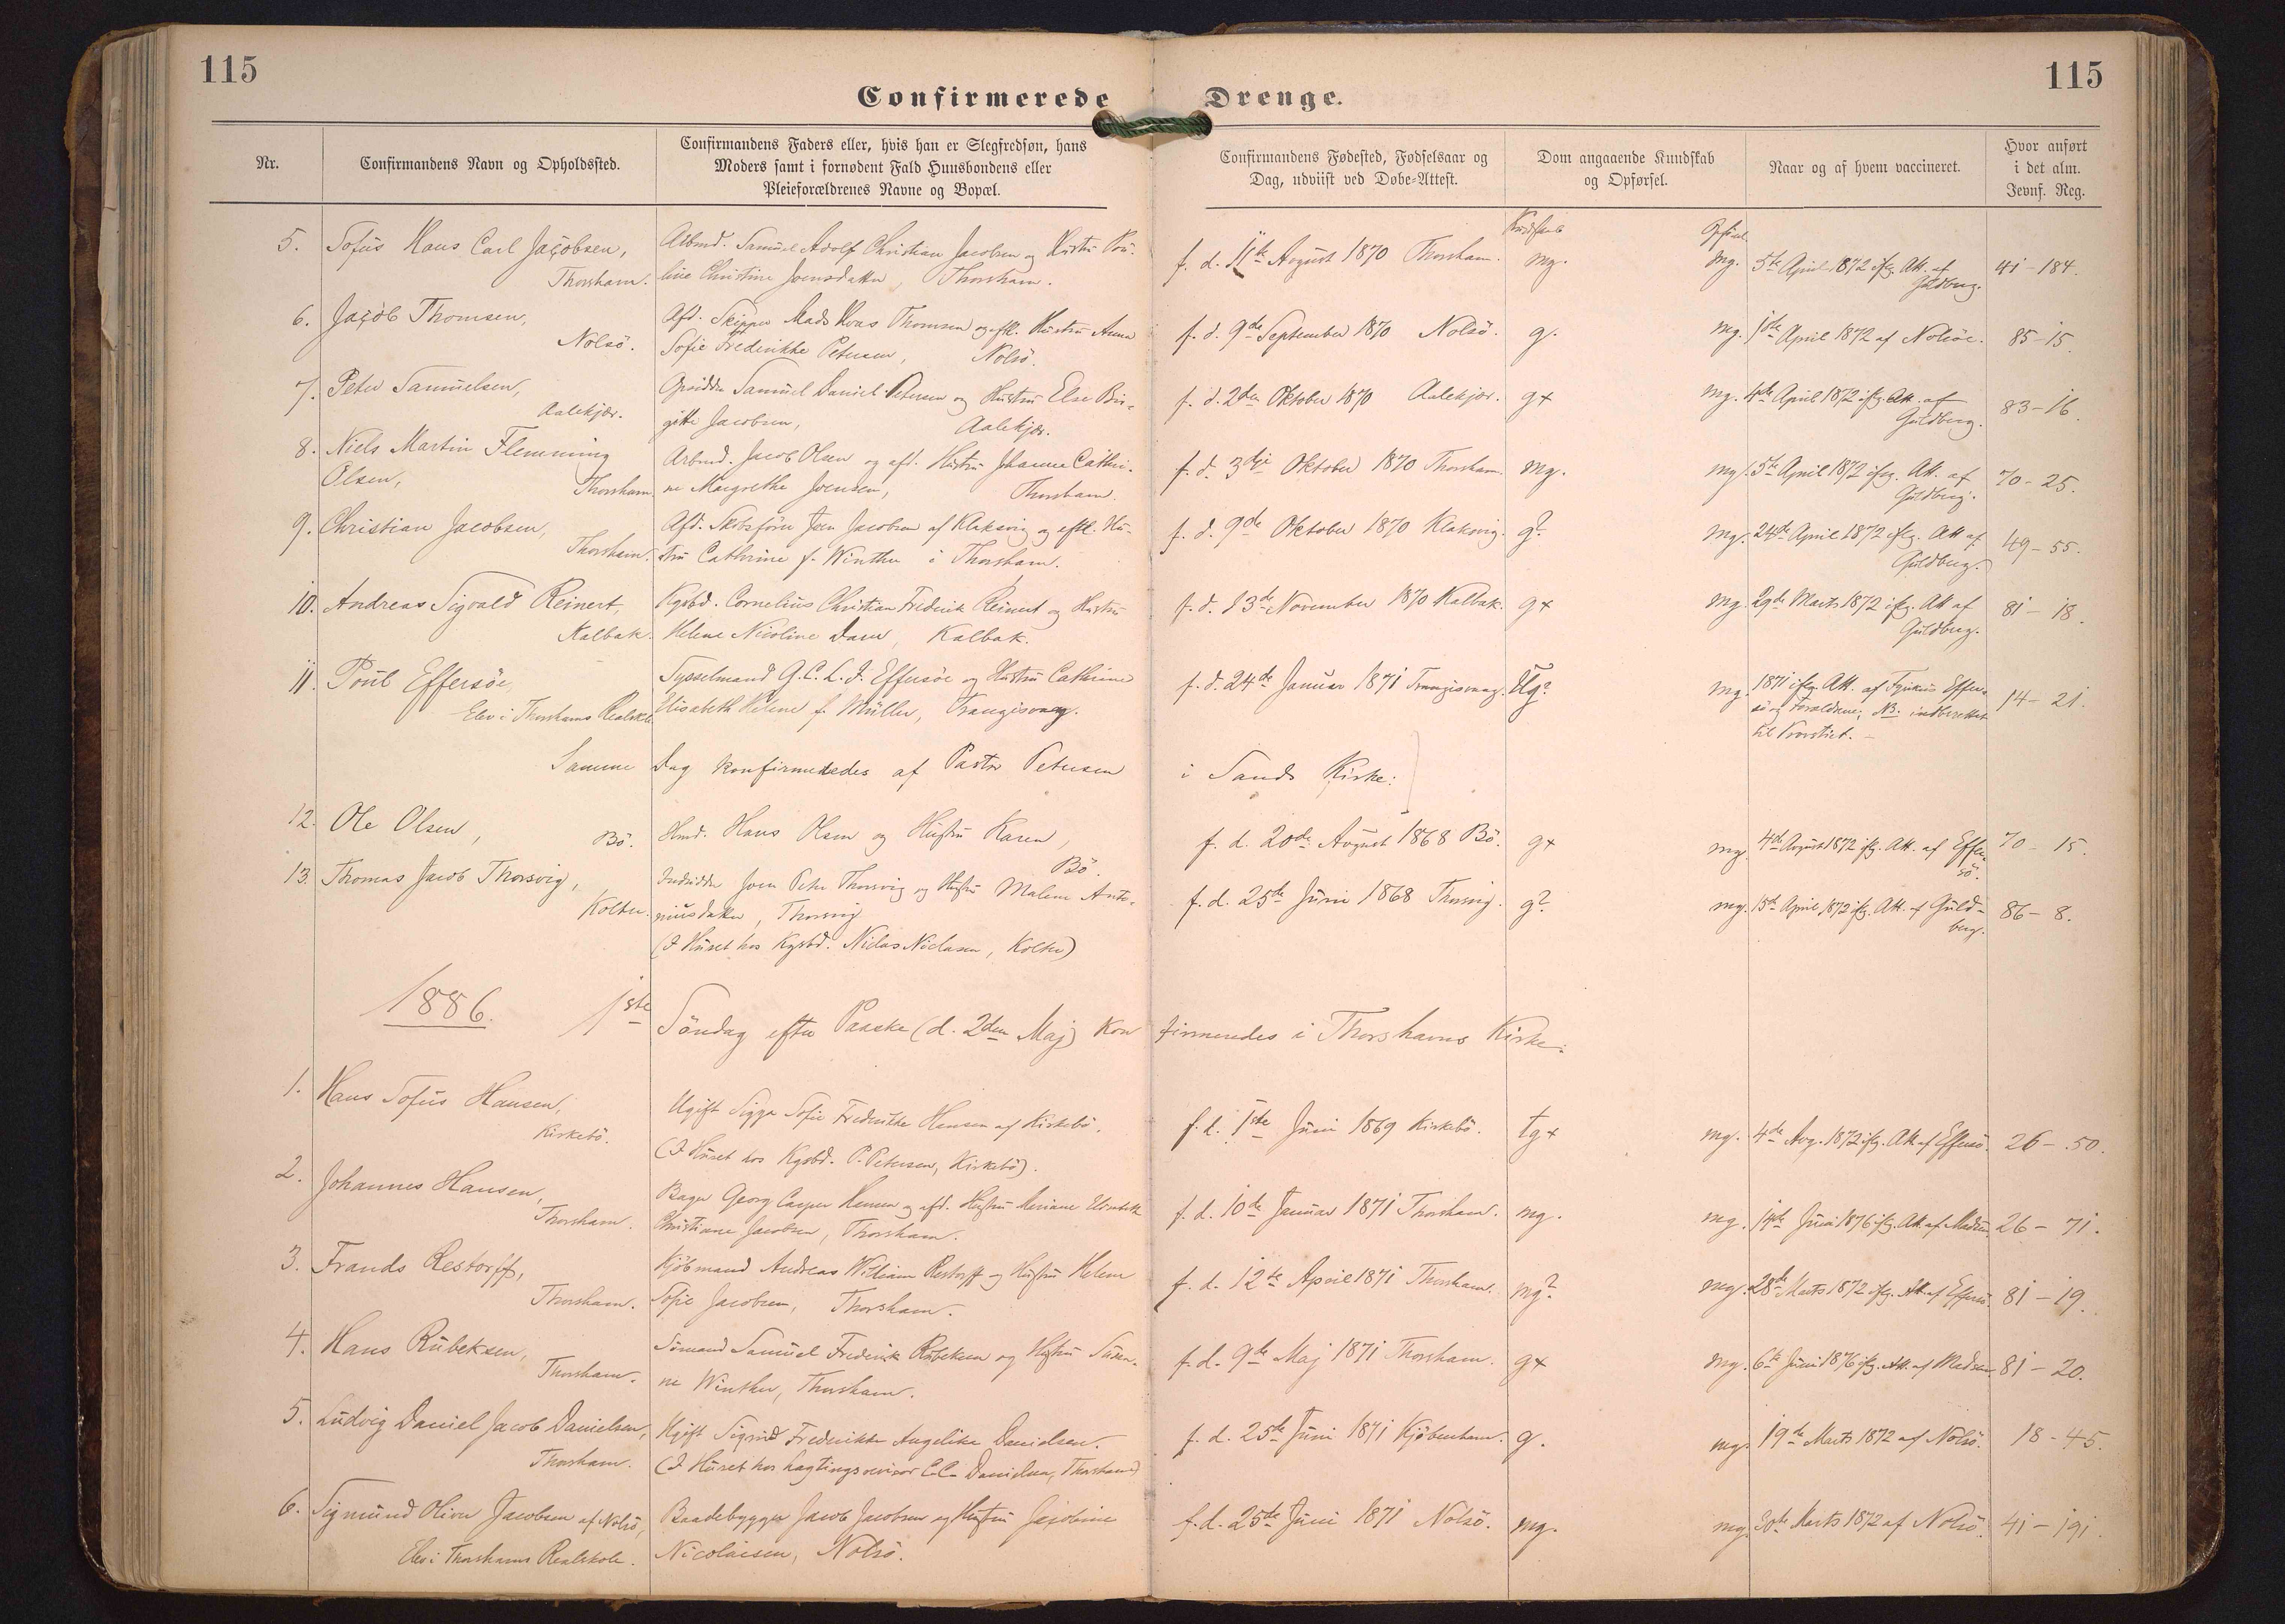 115
115
Confirmerede Drenge.
Nr.
Confirmandens Navn og Opholdssted.
Confirmandens Faders eller, hvis han er Slegfredsøn, hans
Moders samt i fornødent Fald Huusbondens eller
Pleieforældrenes Navne og Bopæl.
Confirmandens Fødested, Fødselsaar og
Dag, udviist ved Døbe-Attest.
Dom angaaende Kundskab
og Opførsel.
Naar og af hvem vaccineret.
Hvor anført
i det alm.
Jevnf. Reg.
Kundskab
5. Sofus Hans Carl Jacobsen,
Thorshavn.
Arbmd. Samuel Adolf Christian Jacobsen og Hustru Pou-
line Christine Joensdatter, Thorshavn.
f. d. 11te August 1870 Thorshavn.
mg.
mg.
5te April 1872 iflg. Att. af
Guldberg.
41-184.
6. Jacob Thomsen,
Nolsö.
Afd. Skipper Mads Thomsen og eftl. Hustru Anna
Sofie Frederikke Petersen, Nolsö.
f. d. 9de September 1870 Nolsö.
g.
mg.
April 1872 af Nolsöe.
85-15.
7. Peter Samuelsen,
Aalekjær.
Samuel Daniel Petersen og Hustru Else Bir-
gitte Jacobsen, Aalekjær.
f. d. 2den Oktober 1870 Aalekjær.
g+
mg.
4de April 1872 iflg. Att. af
Guldberg.
83-16.
8. Niels Martin Flemming
Olsen, Thorshavn
Arbmd. Jacob Olsen og afd. Hustru Johanne Cathri-
ne Margrethe Joensen, Thorshavn.
f. d. 3die Oktober 1870 Thorshavn.
mg.
mg.
5te April 1872 iflg. Att. af
Guldberg.
70-25.
9. Christian Jacobsen,
Thorshavn.
Afd. Skibsförer Joen Jacobsen af Klaksvig og eftl. Hu-
stru Cathrine f. Winther i Thorshavn.
f. d. 9de Oktober 1870 Klaksvig.
g?
mg.
24de April 1872 iflg. Att af
Guldberg.
49-55.
10. Andreas Sigvald Reinert,
Kalbak.
Kgsbd. Cornelius Christian Frederik Reinert og Hustru
Helene Nicoline Dam, Kalbak.
f. d. 3de November 1870 Kalbak.
g+
mg.
29de Marts 1872 iflg. Att af
Guldberg.
81-18.
11. Poul Effersöe,
Elev i Thorshavns Realskole
Sysselmand G. C. L. J. Effersöe og Hustru Cathrine
Elisabeth Helene f. Müller, Trangisvaag.
f. d. 24de Januar 1871 Trangisvaag.
Ug?
mg.
1871 iflg. Att. af Fysikus Effer-
sö og Forældrene; NB. indberettet
til Provstiet.
14-21.
Samme Dag konfirmeredes af Pastor Petersen i Sands Kirke:
12. Ole Olsen,
Bö.
Hmd. Hans Olsen og Hustru Karen,
Bö.
f. d. 20de August 1868 Bö.
g+
mg.
4de August 1872 iflg. Att. af Effer-
sö.
70-15.
13. Thomas Jacob Thorsvig,
Kolter.
Indsidder Joen Peter Thorsvig og Hustru Malene Anto-
niusdatter, Thorsvig
(I Huset hos Kgsbd. Niclas Niclasen, Kolter)
f. d. 25de Juni 1868 Thorsvig.
g?
mg.
15de April 1872 iflg. Att. af Guld-
berg.
86-8.
1886. 1ste Söndag efter Paaske (d. 2den Maj) konfirmeredes i Thorshavns Kirke:
1. Hans Sofus Hansen,
Kirkebö.
Ugift Sigga Sofie Frederikke Hansen af Kirkebö.
(I Huset hos Kgsbd. P. Petersen, Kirkebö).
f. d. 1ste Juni 1869 Kirkebö.
tg+
mg.
4de Aug. 1872 iflg. Att. af Effersö.
26-50.
2. Johannes Hansen,
Thorshavn.
Bager Georg Casper Hansen og afd. Hustru Mariane Elisabeth
Christiane Jacobsen, Thorshavn.
f. d. 10de Januar 1871 Thorshavn.
mg.
mg.
14de Juni 1876 iflg. Att. af Madsen
26-71.
3. Frands Restorff,
Thorshavn.
Kjöbmand Andreas William Restorff og Hustru Helene
Sofie Jacobsen, Thorshavn.
f. d. 12te April 1871 Thorshavn.
mg?
mg.
28de Marts 1872 iflg. Att. af Effersö.
81-19.
4. Hans Rubeksen,
Thorshavn.
Sömand Samuel Frederik Rubeksen og Hustru Susan-
ne Winther, Thorshavn.
f. d. 9de Maj 1871 Thorshavn.
g+
mg.
6te Juni 1876 iflg. Att. af Madsen
81-20.
5. Ludvig Daniel Jacob Danielsen,
Thorshavn.
Ugift Sigrid Frederikke Angelika Danielsen.
(I Huset hos Lagtingsrevisor C. C. Danielsen, Thorshavn)
f. d. 25de Juni 1871 Kjöbenhavn.
g.
mg.
19de Marts 1872 af Nolsö.
18-45.
6. Sigmund Oliver Jacobsen af Nolsö,
Elev i Thorshavns Realskole.
Baadebygger Jacob Jacobsen og Hustru Jacobine
Nicolaisen, Nolsö.
f. d. 25de Juni 1871 Nolsö.
mg.
mg.
30te Marts 1872 af Nolsö.
41-191.